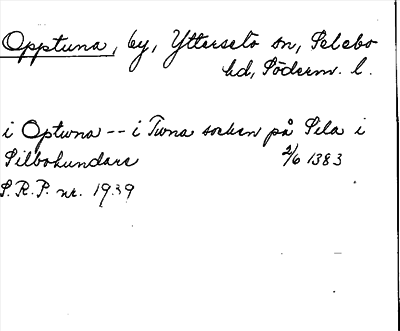 Opptuna, by, Ytterselö sn, Selebo
hd, Söderm. l.
i Optuna -- i Tuna socken på Sila i
Silbohundare 2/6 1383
S.R.P. nr. 1939